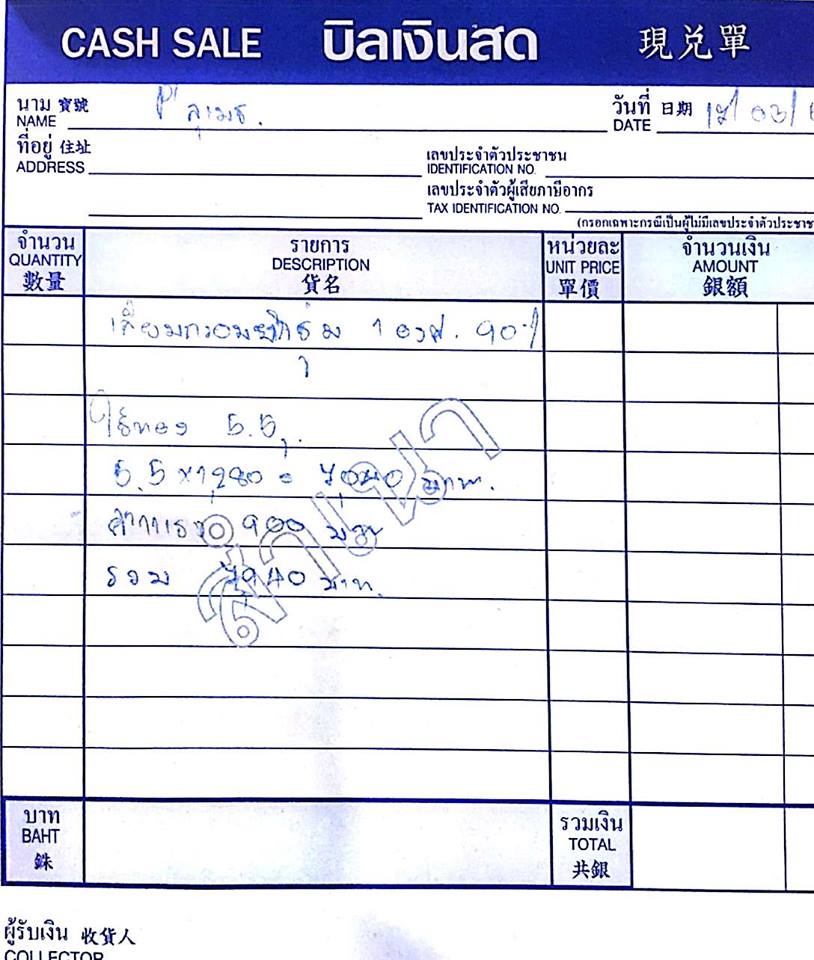 CASH SALE บิลเงินสด 現兌單
นาม 寶號
NAME P'
วันที่ 日期
DATE /03/
ที่อยู่ 住址
ADDRESS
เลขประจำตัวประชาชน
IDENTIFICATION NO.
เลขประจำตัวผู้เสียภาษีอากร
TAX IDENTIFICATION NO.
(กรอกเฉพาะกรณีเป็นผู้ไม่มีเลขประจำตัวประชาช
จำนวน
QUANTITY
數量
รายการ
DESCRIPTION
貨名
หน่วยละ
UNIT PRICE
單價
จำนวนเงิน
AMOUNT
銀額
1 องค์. 90%
ใช้ทอง 5.5
5.5 x 1,280 = 7,040 บาท.
ค่าแรง 900 บาท
รวม 7,940 บาท.
สำเนา
บาท
BAHT
銖
รวมเงิน
TOTAL
共銀
ผู้รับเงิน 收貨人
COLLECTOR